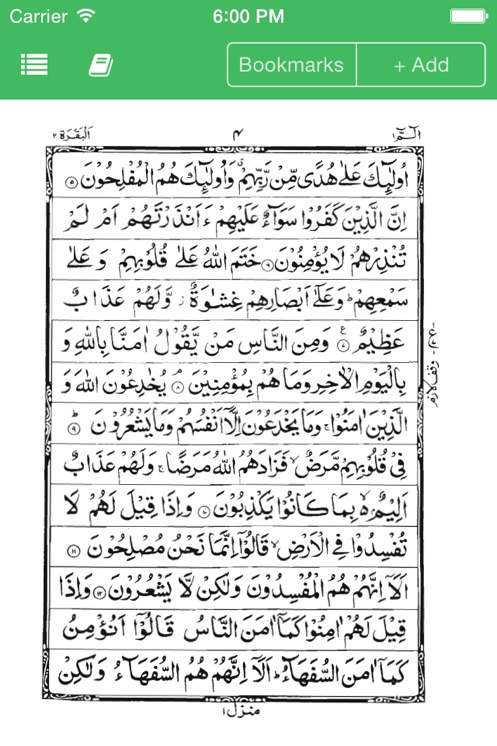 Carrier 6:00 PM
Bookmarks + Add
الٓمّٓ ١ ۴ اَلْبَقَرَة ٢
اُولٰٓئِكَ عَلٰى هُدًى مِّنْ رَّبِّهِمْ ۗ وَاُولٰٓئِكَ هُمُ الْمُفْلِحُوْنَ ۝۵
اِنَّ الَّذِيْنَ كَفَرُوْا سَوَآءٌ عَلَيْهِمْ ءَاَنْذَرْتَهُمْ اَمْ لَمْ
تُنْذِرْهُمْ لَا يُؤْمِنُوْنَ ۝۶ خَتَمَ اللّٰهُ عَلٰى قُلُوْبِهِمْ وَ عَلٰى
سَمْعِهِمْ ؕ وَعَلٰٓى اَبْصَارِهِمْ غِشَاوَةٌ ز وَّلَهُمْ عَذَابٌ
عَظِيْمٌ ۝۷ ع وَمِنَ النَّاسِ مَنْ يَّقُوْلُ اٰمَنَّا بِاللّٰهِ وَ
بِالْيَوْمِ الْاٰخِرِ وَمَا هُمْ بِمُؤْمِنِيْنَ ۝۸ يُخٰدِعُوْنَ اللّٰهَ وَ
الَّذِيْنَ اٰمَنُوْا ۚ وَمَا يَخْدَعُوْنَ اِلَّآ اَنْفُسَهُمْ وَمَا يَشْعُرُوْنَ ۝۹ ؕ
فِيْ قُلُوْبِهِمْ مَّرَضٌ ۙ فَزَادَهُمُ اللّٰهُ مَرَضًا ۚ وَلَهُمْ عَذَابٌ
اَلِيْمٌۢ ۙ بِمَا كَانُوْا يَكْذِبُوْنَ ۝۱۰ وَاِذَا قِيْلَ لَهُمْ لَا
تُفْسِدُوْا فِي الْاَرْضِ ۙ قَالُوْٓا اِنَّمَا نَحْنُ مُصْلِحُوْنَ ۝۱۱
اَلَآ اِنَّهُمْ هُمُ الْمُفْسِدُوْنَ وَلٰكِنْ لَّا يَشْعُرُوْنَ ۝۱۲ وَاِذَا
قِيْلَ لَهُمْ اٰمِنُوْا كَمَآ اٰمَنَ النَّاسُ قَالُوْٓا اَنُؤْمِنُ
كَمَآ اٰمَنَ السُّفَهَآءُ ؕ اَلَآ اِنَّهُمْ هُمُ السُّفَهَآءُ وَلٰكِنْ
منزل ١